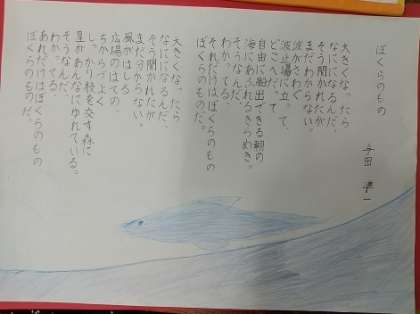 ぼくらのもの
与田 凖一
大きくなったら
なにになるんだ、
そう聞かれたが
まだわからない。
波がさわぐ
波止場に立って、
どこへだって
自由に船出できる朝の
海にあふれるきらめき。
そうなんだ、
わかってる
それだけはぼくらのもの
ぼくらのものだ。
大きくなったら
なにになるんだ、
そう聞かれたが
まだ分からない。
風がはしる
広場のはての、
ちからづよく
しっかり枝を交す森に
星があんなにゆれている。
そうなんだ、
わかってる
あれだけはぼくらのもの
ぼくらのものだ。